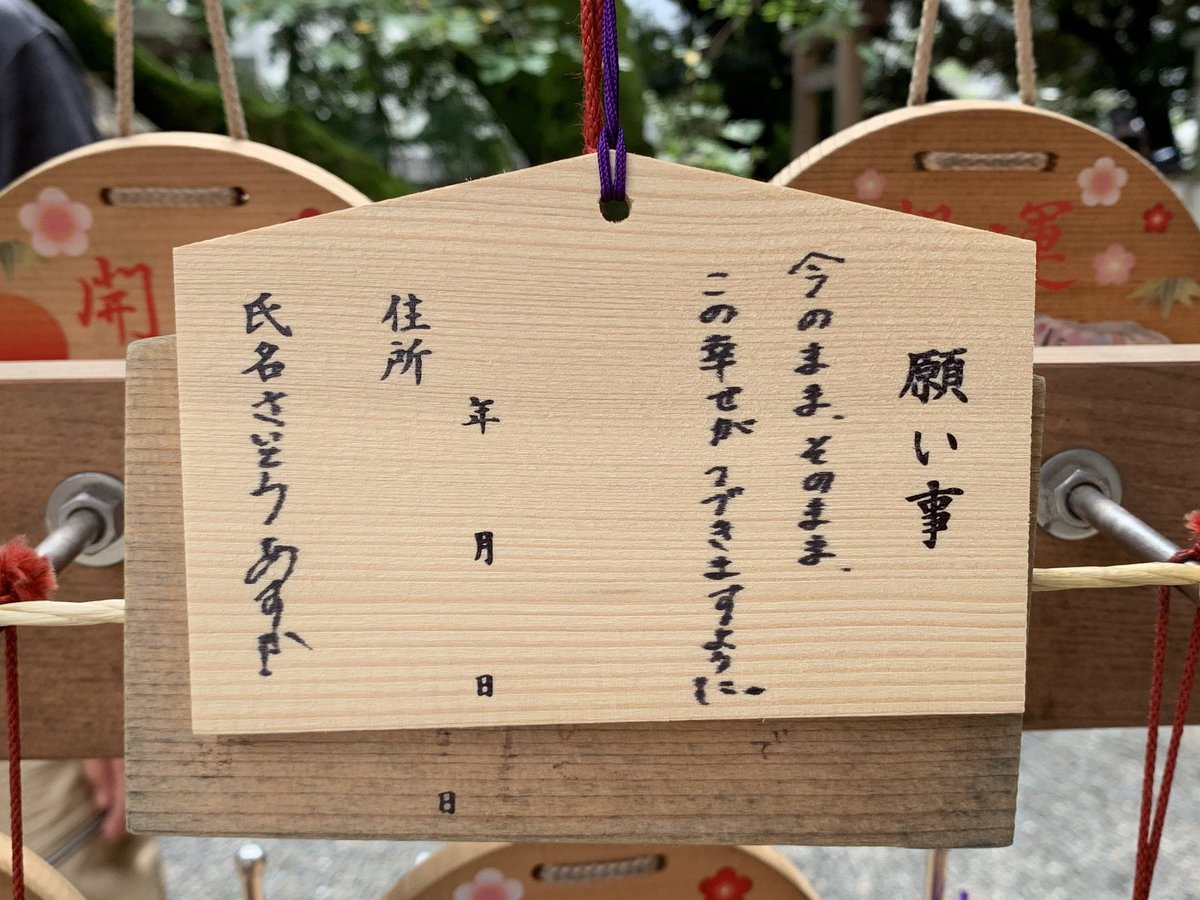 願い事
今のまま、そのまま、
この幸せが つづきますように。
年 月 日
住所
氏名 さいとう あすか
運
開
日